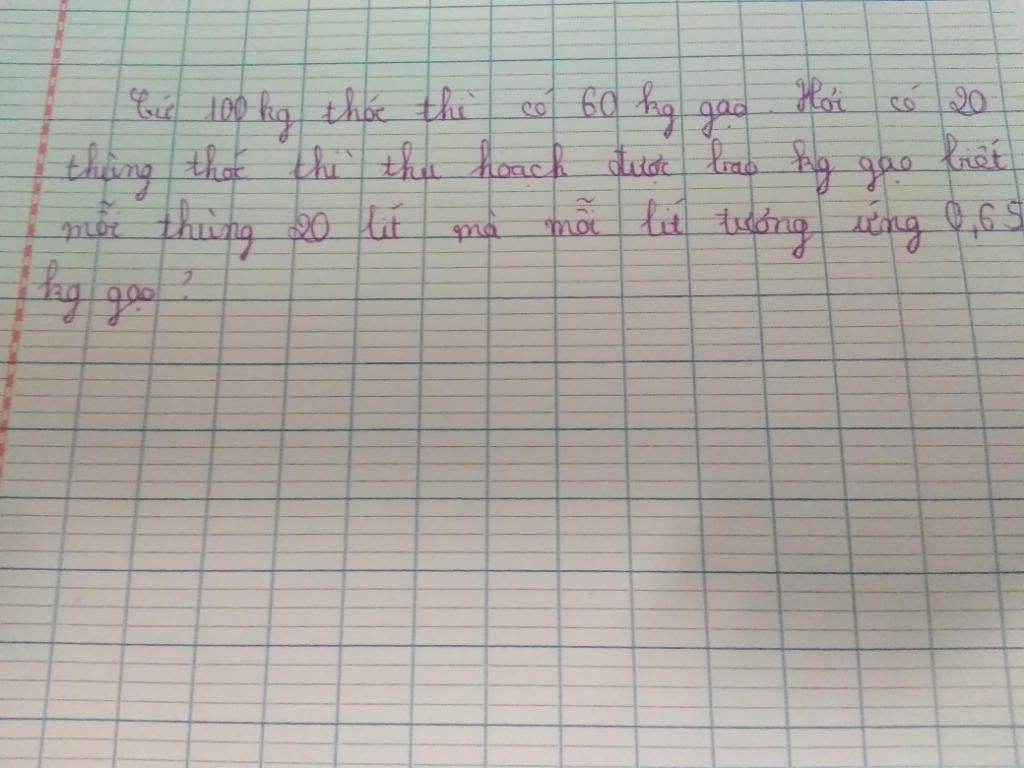 Cứ 100 kg thóc thì có 60 kg gạo. Hỏi có 20
thùng thóc thì thu hoạch được bao kg gạo biết
mỗi thùng 20 lít mà mỗi lít tướng ứng 0,65
kg gạo ?